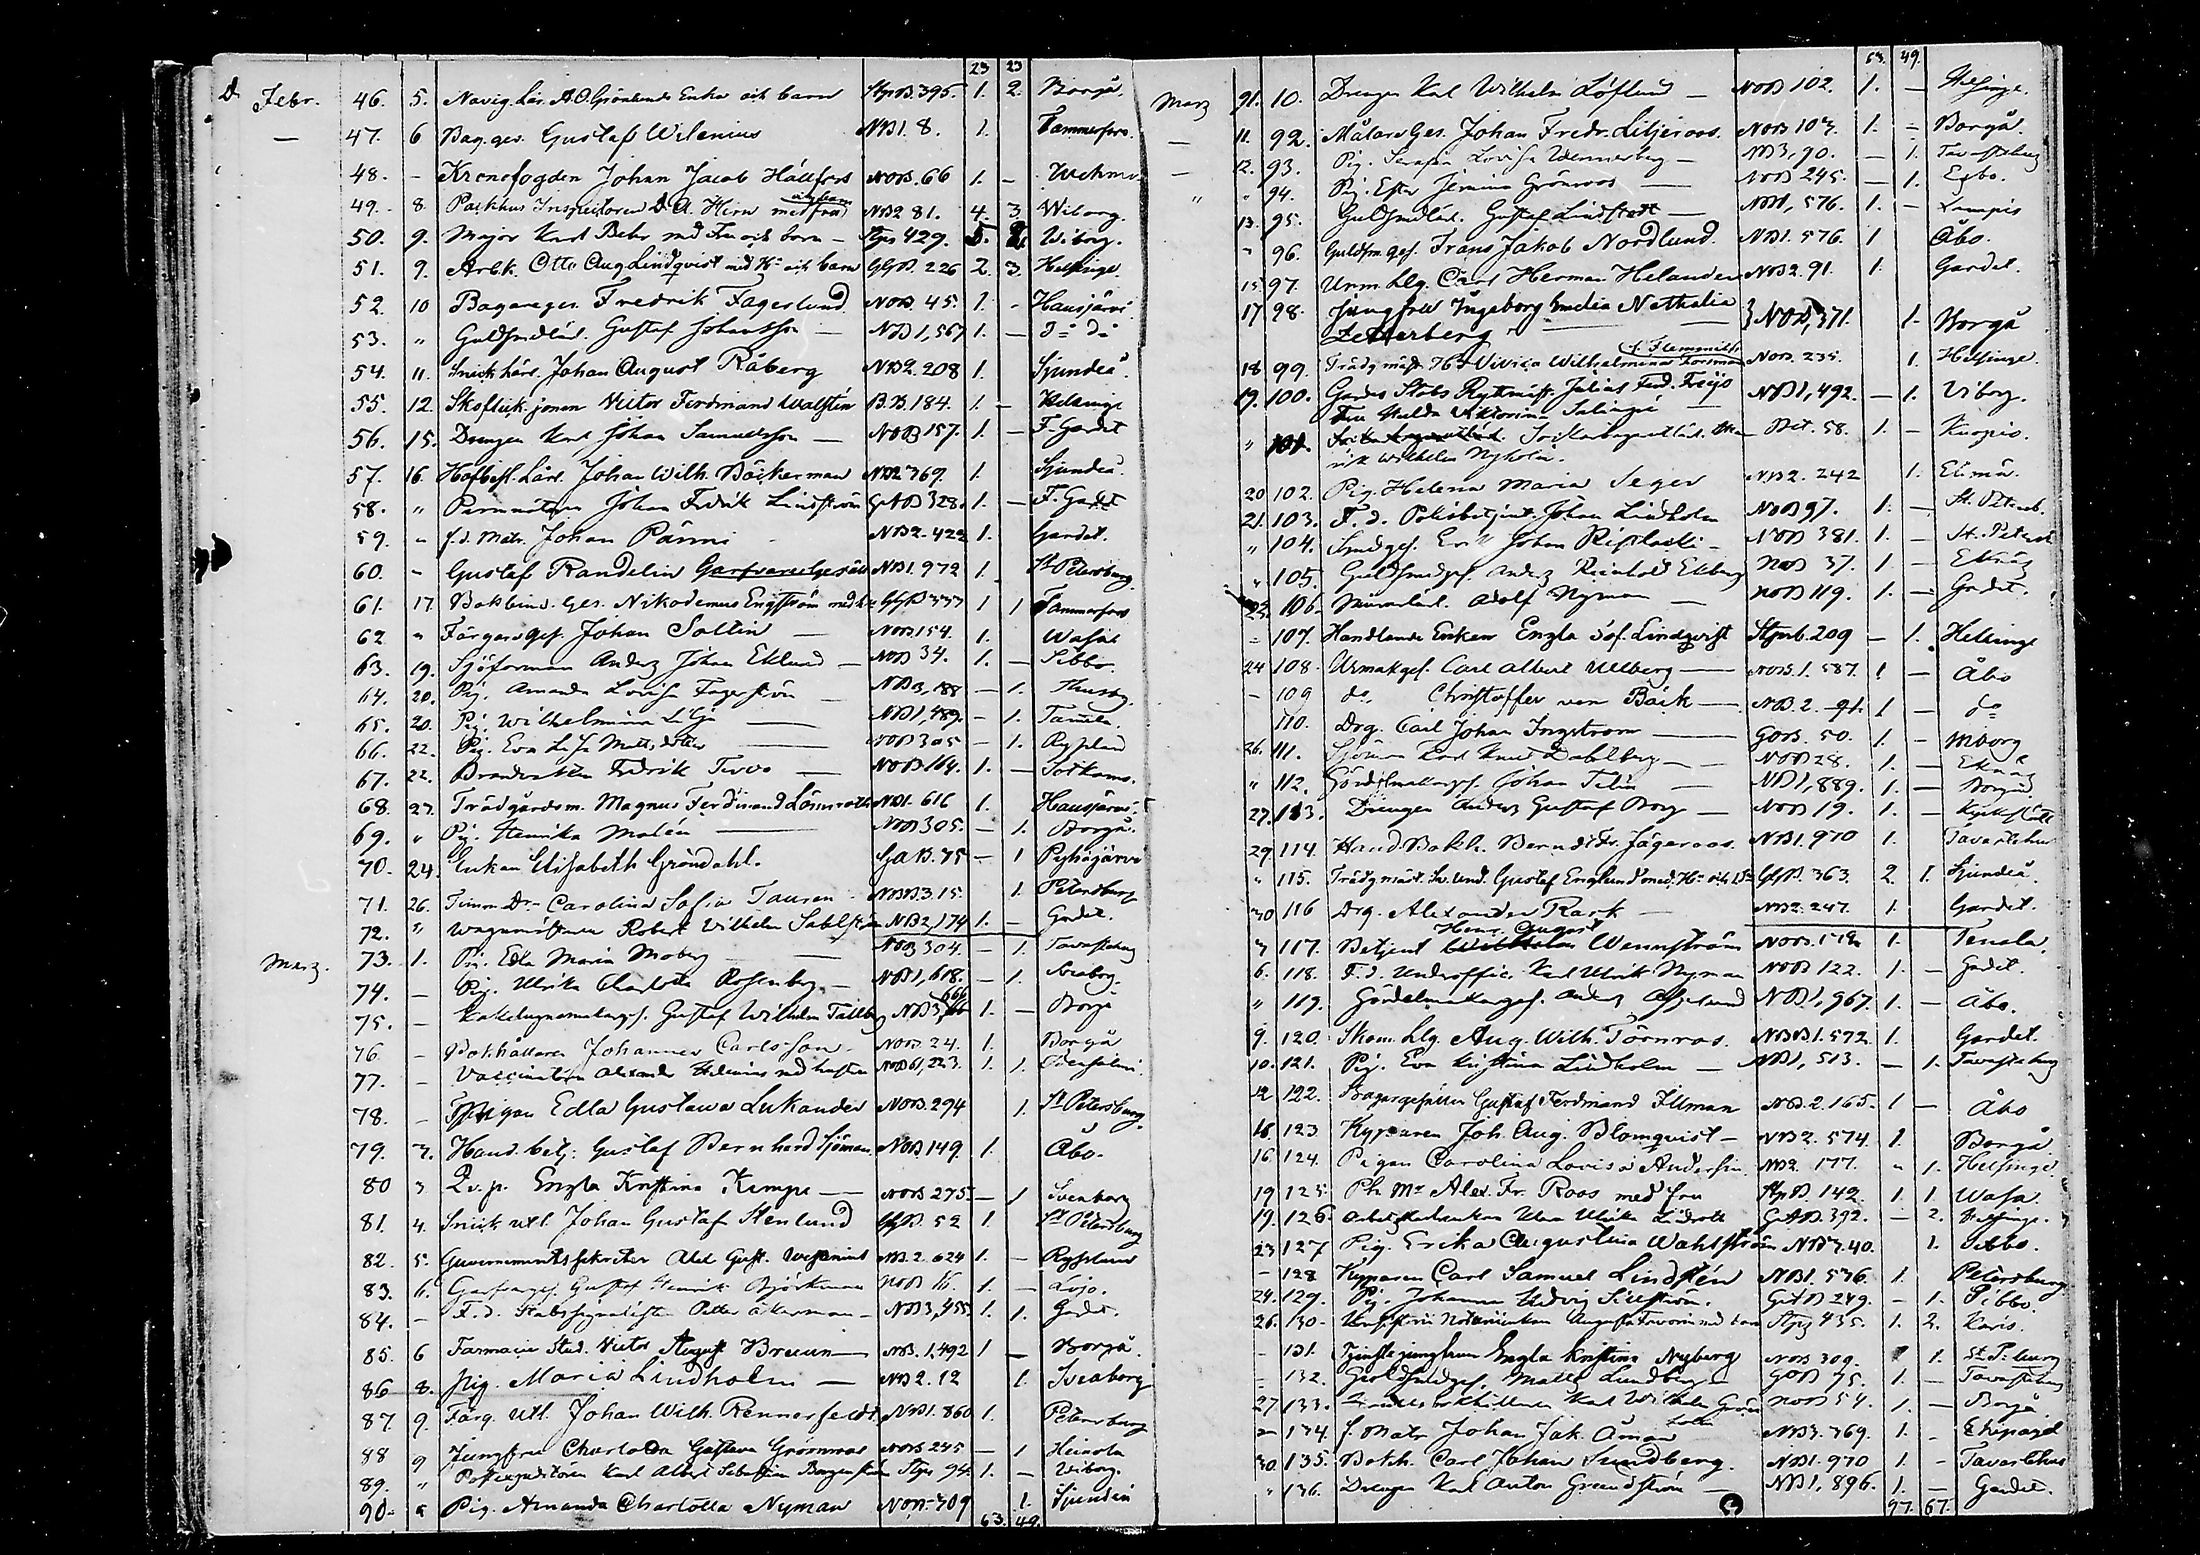 23 23
Febr. 46. 5. Navig. Lär. A.O. Grönlunds Enka och barn StpB. 395. 1. 2. Borgå.
— 47. 6 Bag. ges. Gustaf Wilenius NB1. 8. 1. Tammerfors.
48. - Kronofogden Johan Jacob Hällfors NOB. 66 1. -
49. 8 Packhus Inspektoren D.A. Hirn med fru NB2 81. 4. 3. Wiborg.
50. 9. Major Karl Behr med Fru och barn - 429. 5. 2. Wiborg.
51. 9. Arb.k. Otto Aug. Lindqvist med Hu och barn GGB. 226 2. 3. Helsinge.
52. 10 Bagareges. Fredrik Fagerlund NOB. 45. 1. - Hausjärvi
53. " Guldsmedlärl. Gustaf Johansson — NB1,567 1. — do do
54. 11. Snick. lärl. Johan August Råberg NB2. 208 1. Sjundeå.
55. 12. Viktor Ferdinand Walstén B.B. 184. 1. — Helsinge
56. 15. Drengen Karl Johan Samuelsson — NOB 157. 1. — F. Gardet
57. 16. Hofbesl. Lärl. Johan Wilh. Bäckerman NB2 369. 1. Sjundeå.
58. " Johan Fredrik Lindström GAB 328. 1. — F. Gardet
59. " f.d. Matr. Johan Pärmi NB2. 422 1. Gardet.
60. - Gustaf Randelin Garfvaregesäll NB1. 972 1. St Petersburg
61. 17 Bokbind. Ges. Nikodemus Engström med hu GGB 337 1 1 Tammerfors
62. " Färgareges. Johan Sallin — NOB 154. 1. Wasa
63. 19. Sjöforman Anders Johan Eklund — NOB 34. 1. — Sibbo.
64. 20. Pig. Amanda Lovisa Fagerström NB3,188 — 1.
65. 20. Pig. Wilhelmina Lilja — NB1,489. - 1.
66. 22. Pig. Eva Lisa Matts dotter — NOB 305 — 1. Ryssland
67. 22. Brandvakten Fredrik Tervo — NOB 164. 1. — Sotkamo.
68. 23. Trädgårdsm. Magnus Ferdinand Lönnroth NB1. 616 1. Hausjärvi
69. " Pig. Henrika Malén — NOB 305. — 1. Borgå.
70. 24. Enkan Elisabeth Gröndahl. GAB. 75 — 1 Pyhäjärvi
71. 26. Timm. Dr. Carolina Sofia Tauren NOBB. 3. 15. 1. Petersburg
72. " Wagnmästaren Robert Wilhelm Sahlström NB2,174 1. — Gardet.
Marz. 73. 1. Pig. Edla Maria Moberg — NOB 304. — 1. Tavastehus
74. — Pig. Ulrika Charlotta Rosenberg. — NB1,618. — 1. Sveaborg.
75. — Kakelugnsmakargs. Gustaf Wilhelm Tallberg NB3, 1. — Borgå
76. — Bokhållaren Johannes Carlsson NOB. 24. 1. Borgå
77. — Vaccinatören Alexander Helenius med hustru 1. 1.
78. — Pigan Edla Gustava Lukander NOB. 294 1. St Petersburg.
79. 3. Hand. betj. Gustaf Bernhard Sjöman NOB 149. 1. Åbo.
80 3 Qv.p. Engla Kristina Kempe — NOB 275. — 1 Sveaborg
81. 4. Snick utl. Johan Gustaf Stenlund GGB. 52 1. St Petersburg
82. 5. Guvernementssekreter Abel Gust. NB. 2. 624 1. — Ryssland
83. 6. Garfvareges. Gustaf Henrik Björkman NOB 16. 1. — Lojo.
84. — F.d. Stabssignalisten Petter Åkerman — NB3,455. 1. 1. Gardet.
85. 6 Farmacie Stud. Victor August Bruun — NB. 1,492 1 — Borgå.
86 8. Pig. Maria Lindholm — NB2. 12 1. Sveaborg
87. 9. Färg. Utl. Johan Wilh. Rennerfeldt NB1. 860 1. Petersburg
88 9 Jungfru Charlotta Gustava Grönroos NOB 245 — 1 Heinola
89. " Postexpeditören Karl Albert Sebastian Borgenström 94. 1. — Wiborg.
90. " Pig. Amanda Charlotta Nyman NOB 309 1. Sjundeå
63. 49.
63. 49.
Marz 91. 10. Drengen Karl Wilhelm Löflund — NOB 102. 1. — Helsinge.
— 11. 92. Målare Ges. Johan Fredr. Liljeroos. NOB 103. 1. — Borgå.
— 12. 93. Pig. Serafia Lovisa Wennerberg — NB3,90. — 1. Tavastehus
" " 94. Pig. Ester Jemina Grönroos — NOB 245. — 1. Esbo.
13. 95. Guldsmedlärl. Gustaf Lindstedt — NB1, 576. 1. — Lampis
" 96. Guldsm. ges. Frans Jakob Nordlund. NB1. 576. 1 Åbo.
15 97. Urm. Llg. Carl Herman Helander NB2. 91. 1. Gardet.
17 98. Jungfru Ingeborg Emelia Nathalia
Zetterberg NOB, 371. 1. Borgå
18 99. Trädg. mäst. Hu Vivica Wilhelmina NOB. 235. 1 Helsinge.
19. 100. Gardes Stabs Rytmäst. Julius Ferd.
Fru Hulda Viktorina NB1,492. — 1. Viborg.
" 101. Sockerbagarelärl. Bet. 58. 1. — Kuopio.
Wilhelm Nyholm.
20 102. Pig. Helena Maria Seger NB2. 242 1. Elimä.
21. 103. F.d. Polisbetjent. Johan Lindholm NOB 97. 1. — St. Petersb.
" 104. Smedges. Erik Johan NOB 381. 1. — St. Petersb
" 105. Guldsmedges. Anders Reinhold Ekberg NOB 37. 1. — Ekenäs
22. 106. Murarelärl. Adolf Nyman — NOB 119. 1. — Gardet.
" 107. Handlande Enkan Engla Sof. Lindqvist Stprb. 209 — 1. Helsinge
24 108. Urmakges. Carl Albert Ullberg — NOB. 1. 587. 1 — Åbo
— 109 do Christoffer von Bäck — NB. 2. 91. 1 — do
110. Drg. Carl Johan Ingstrom — GOB. 50. 1. — Wiborg
26. 111. Sjöman Karl Knut Dahlberg — NOB 28. 1. — Ekenäs
" 112. Gördelmakarges. Johan Telin — NB1,889. 1. — Borgå
27. 113. Drengen Anders Gustaf Borg — NOB 19. 1. — Kyrkslätt
29 114. Hand. Bokh. Berndt Fr. Jägeroos. NB1. 970 1. Tavastehus
" 115. Trädg. mäst. Gustaf Englund med Hu och Dr GGB. 363. 2. 1. Sjundeå.
30 116 Drg. Alexander Rask — NB2. 247. 1. Gardet.
Henr. August
3 117. Betjent Wilhelm Wennström NOB. 1. Tenala.
6. 118. F.d. Underoffic. Karl Ulrik Nyman NOB 122. 1. — Gardet.
" 119. Gördelmakarges. Anders NB1,967. 1. — Åbo.
9. 120. Skom. Llg. Aug. Wilh. Törnroos. NBB1. 572. 1. Gardet.
10. 121. Pig. Eva Kristina Lindholm — NB1, 513. — 1. Tavastehus
12 122. Bagargesällen Gustaf Ferdinand Illman NB. 2. 165. 1 — Åbo
16. 123 Kyparen Joh. Aug. Blomqvist — NB2. 574. 1. Borgå
16. 124. Pigan Carolina Lovisa Andersin. NB2. 177. " 1. Helsinge.
19 125. Ph. Mr Alex. Fr. Roos med fru StpB. 142. 1. 1. Wasa.
19. 126. Ulrika GAB. 392. — 2. Helsinge.
23 127 Pig. Erika Augustina Wahlström NB3. 40. 1. Sibbo.
— 128 Kyparen Carl Samuel Lindstén NB1. 576. 1. Petersburg
24. 129. Pig. Johanna Hedvig GAB 249. — 1. Sibbo.
26. 130. Augusta 435. 1. 2. Karis.
— 131. Engla Kristina Nyberg NOB 309. 1. St. P:burg
— 132. Guldsmedges. Matts Lundberg — GOB 75. 1. — Tavastehus
27 133. Karl Wilhelm NOB 54. 1. — Borgå
" 134. f. Matr. Johan Jak. Öman NB3. 369. 1. —
30. 135. Bokh. Carl Johan Sundberg. NB1. 970 1. - Tavasthus
" 136. Drengen Karl Anton Grundström — NB1, 896. 1. — Gardet.
97. 67.